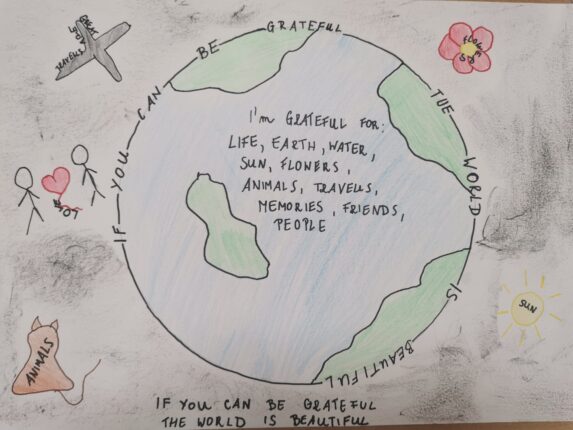 IF YOU CAN BE GRATEFUL THE WORLD IS BEAUTIFUL
TRAVELLS
FLOWERS
I'm GRATEFUL FOR:
LIFE, EARTH, WATER,
SUN, FLOWERS,
ANIMALS, TRAVELLS,
MEMORIES, FRIENDS,
PEOPLE
LOVE
SUN
ANIMALS
IF YOU CAN BE GRATEFUL
THE WORLD IS BEAUTIFUL